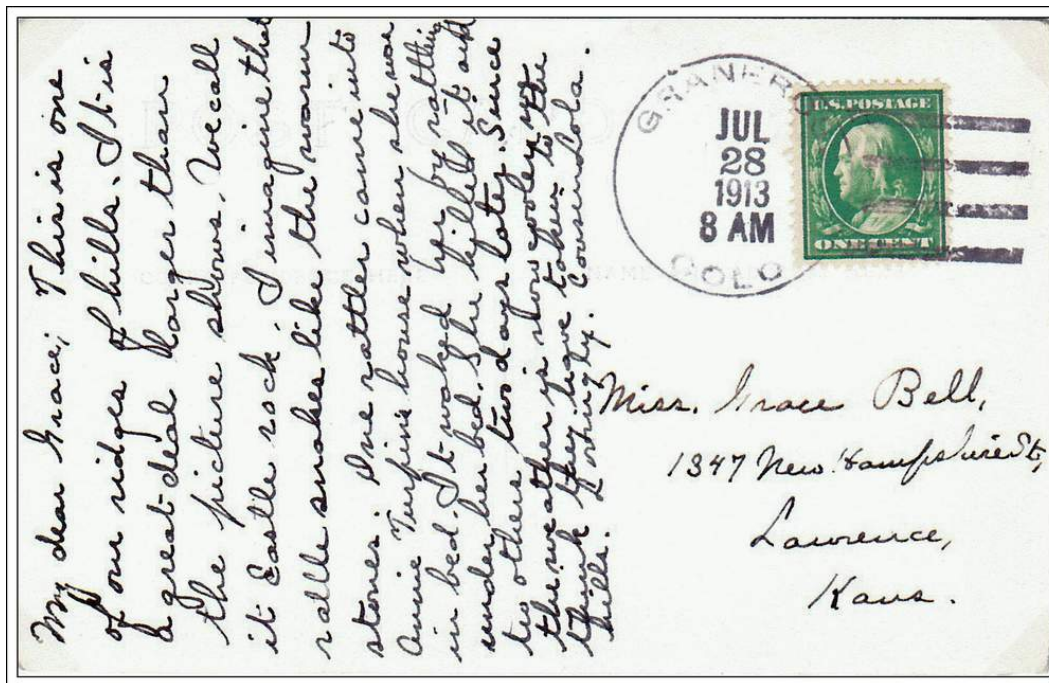 My dear Grace; This is one
of our ridges of hills. It is
a great deal larger than
the picture shows. We call
it Castle rock. I imagine that
ralle snakes like the warm
stones. One rattler came into
Annie Turpin's house when she was
in bed. It waked her by rattling
under her bed. She killed it and
two others two days later. Since
the weather is now cooler, we
think they have taken to the
hills. Lovingly. Cousin Lola.
GRANERO
JUL
28
1913
8 AM
COLO
U.S. POSTAGE
ONE CENT
Miss. Grace Bell,
1347 New Hampshire St,
Lawrence,
Kans.